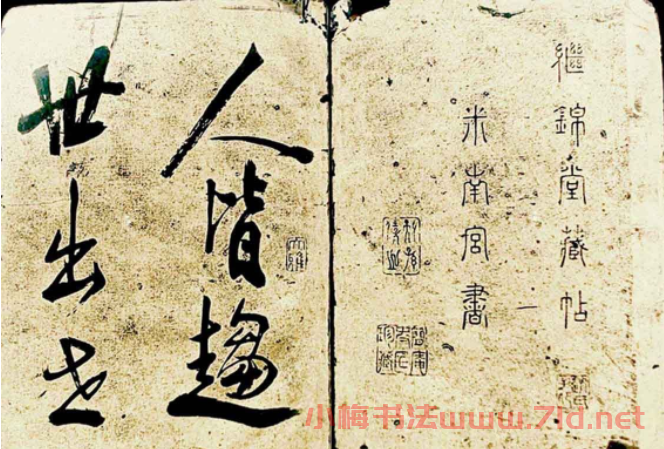 繼錦堂藏帖
米南宮書
人皆趨
世出世
小梅书法www.7ld.net